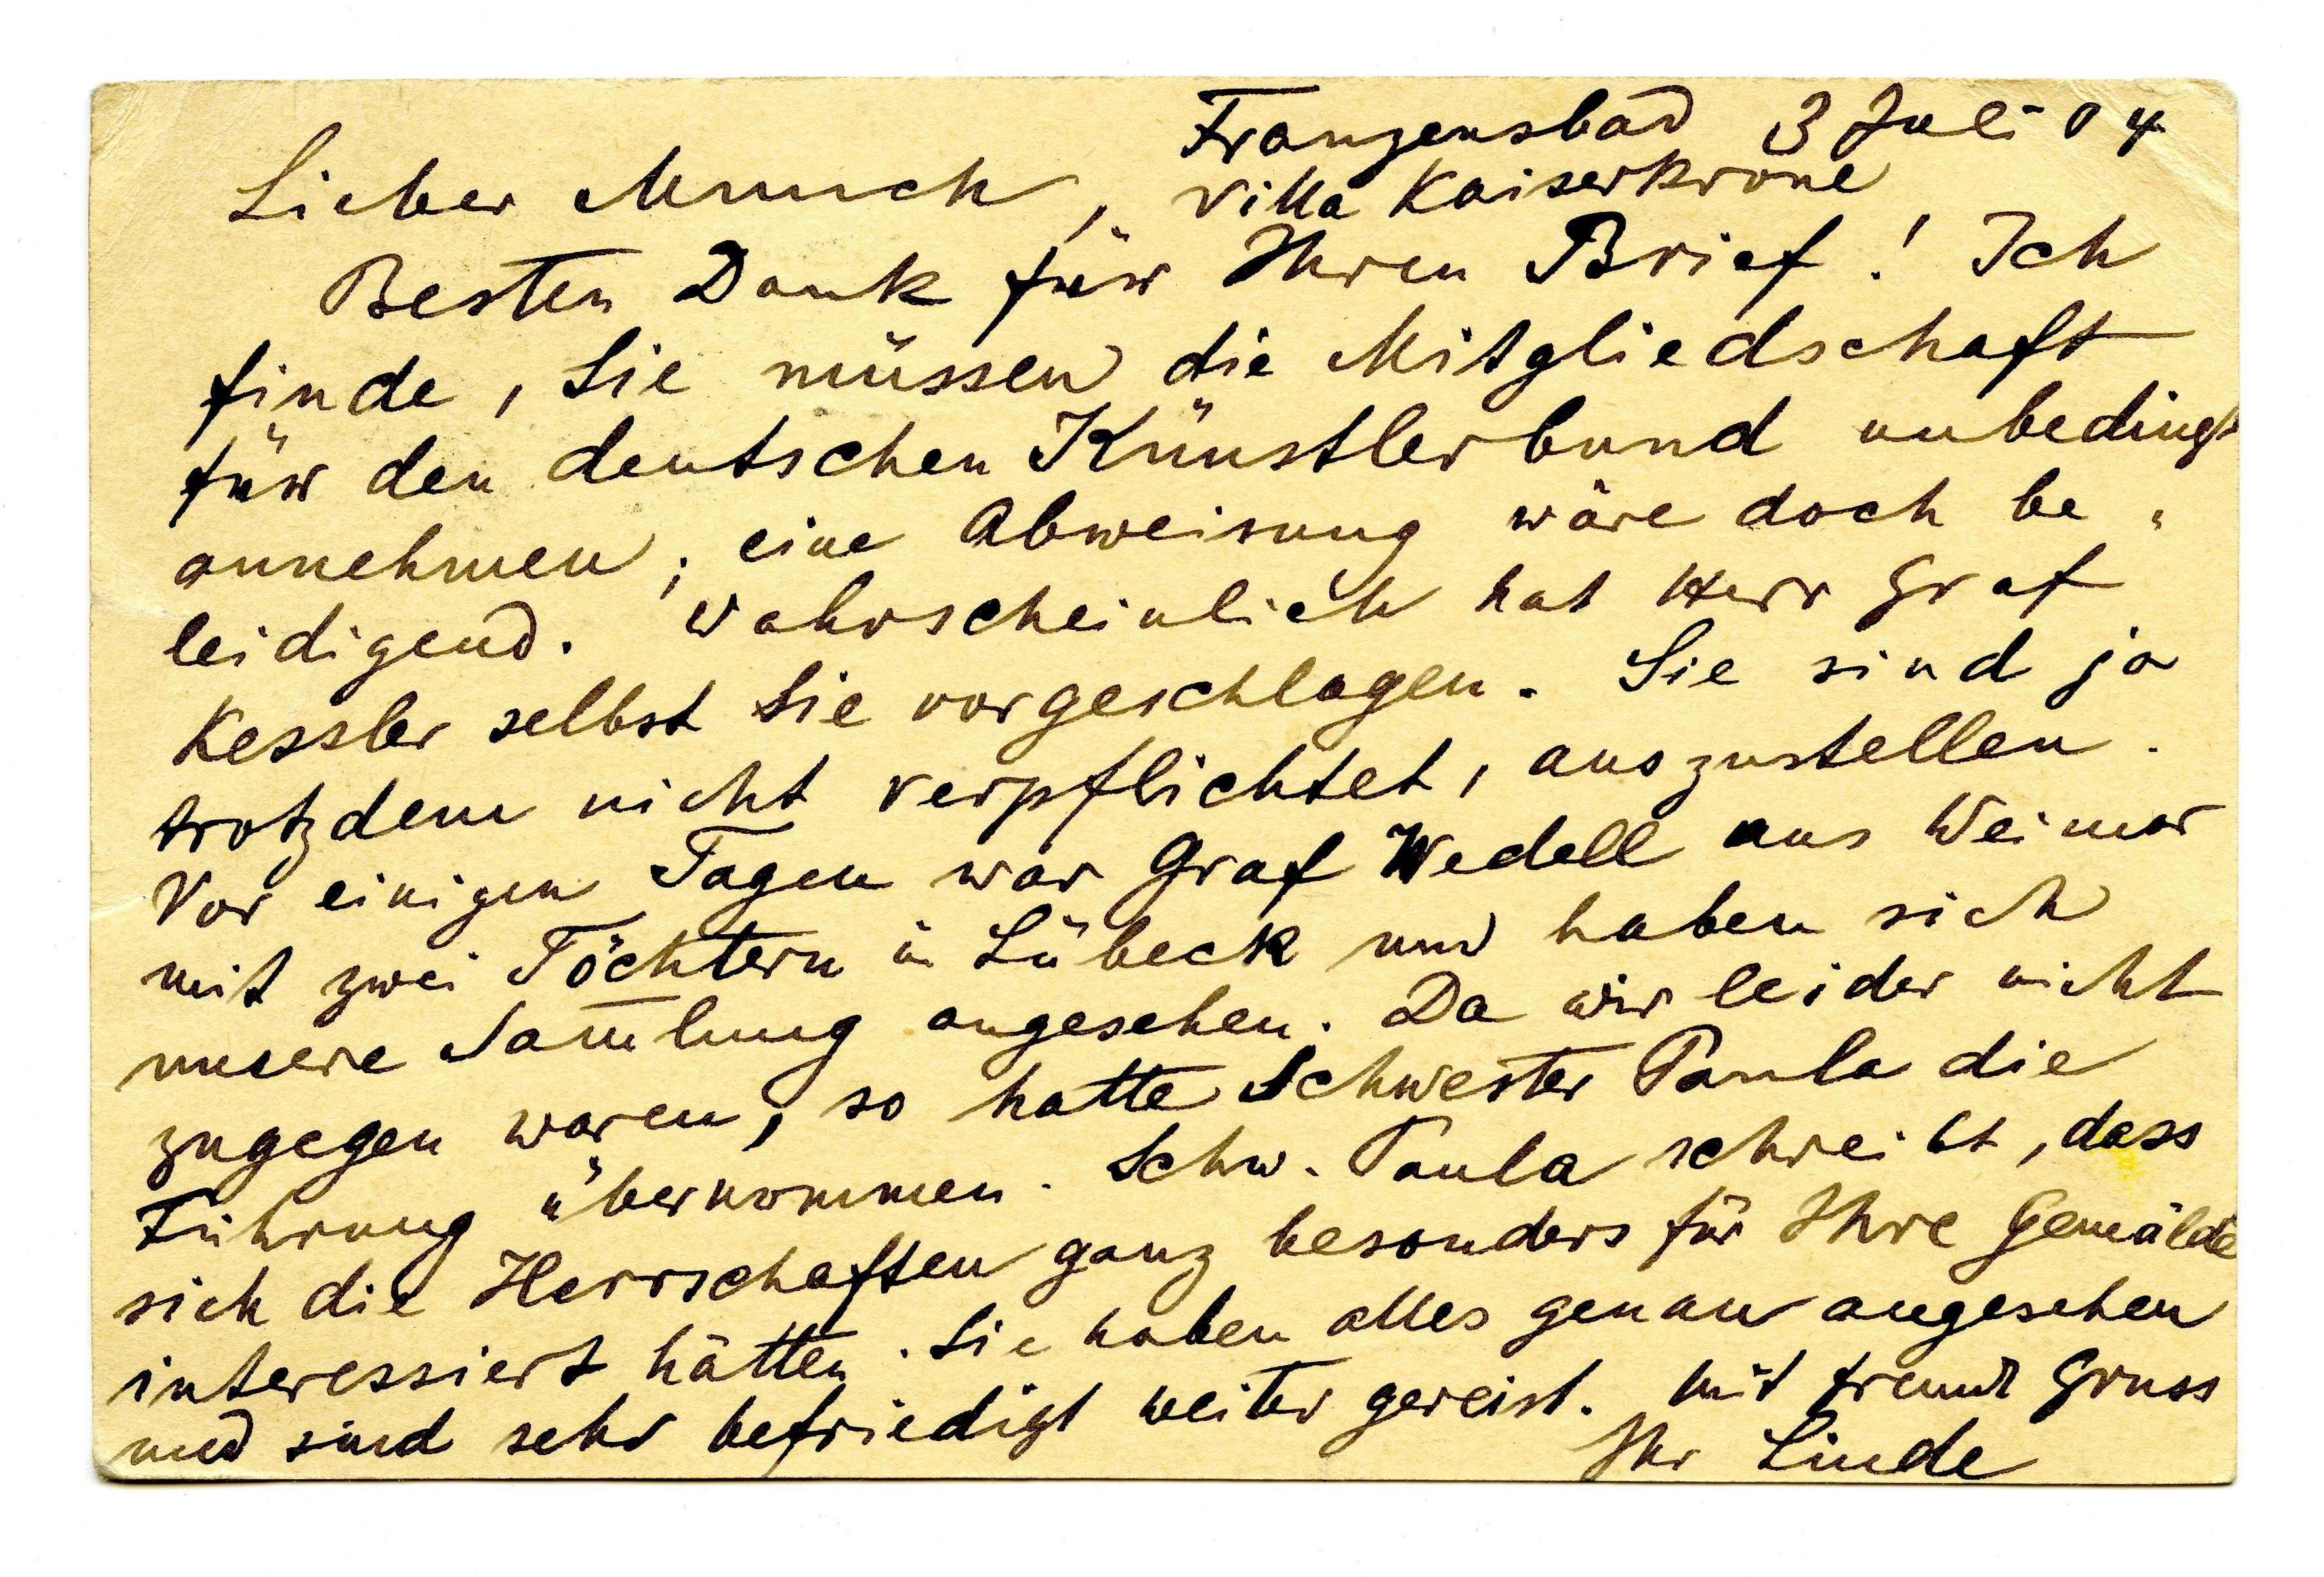 Franzensbad 3 Juli 04
Villa Kaiserkrone
Lieber Munch,
Besten Dank für Ihren Brief! Ich
finde, Sie müssen die Mitgliedschaft
für den deutschen Künstlerbund unbedingt
annehmen; eine Abweisung wäre doch be„
leidigend. Wahrscheinlich hat Herr Graf
Kessler selbst Sie vorgeschlagen. Sie sind ja
trotzdem nicht verpflichtet, auszustellen.
Vor einigen Tagen war Graf Wedell aus Weimar
mit zwei Töchtern in Lübeck und haben sich
unsere Sam̅lung angesehen. Da wir leider nicht
zugegen waren, so hatte Schwester Paula die
Führung übernommen. Schw. Paula schreibt, dass
sich die Herrschaften ganz besonders für Ihre Gemälde
interessiert hätten. Sie haben alles genau angesehen
und sind sehr befriedigt weiter gereist. Mit freundl Gruss
Ihr Linde